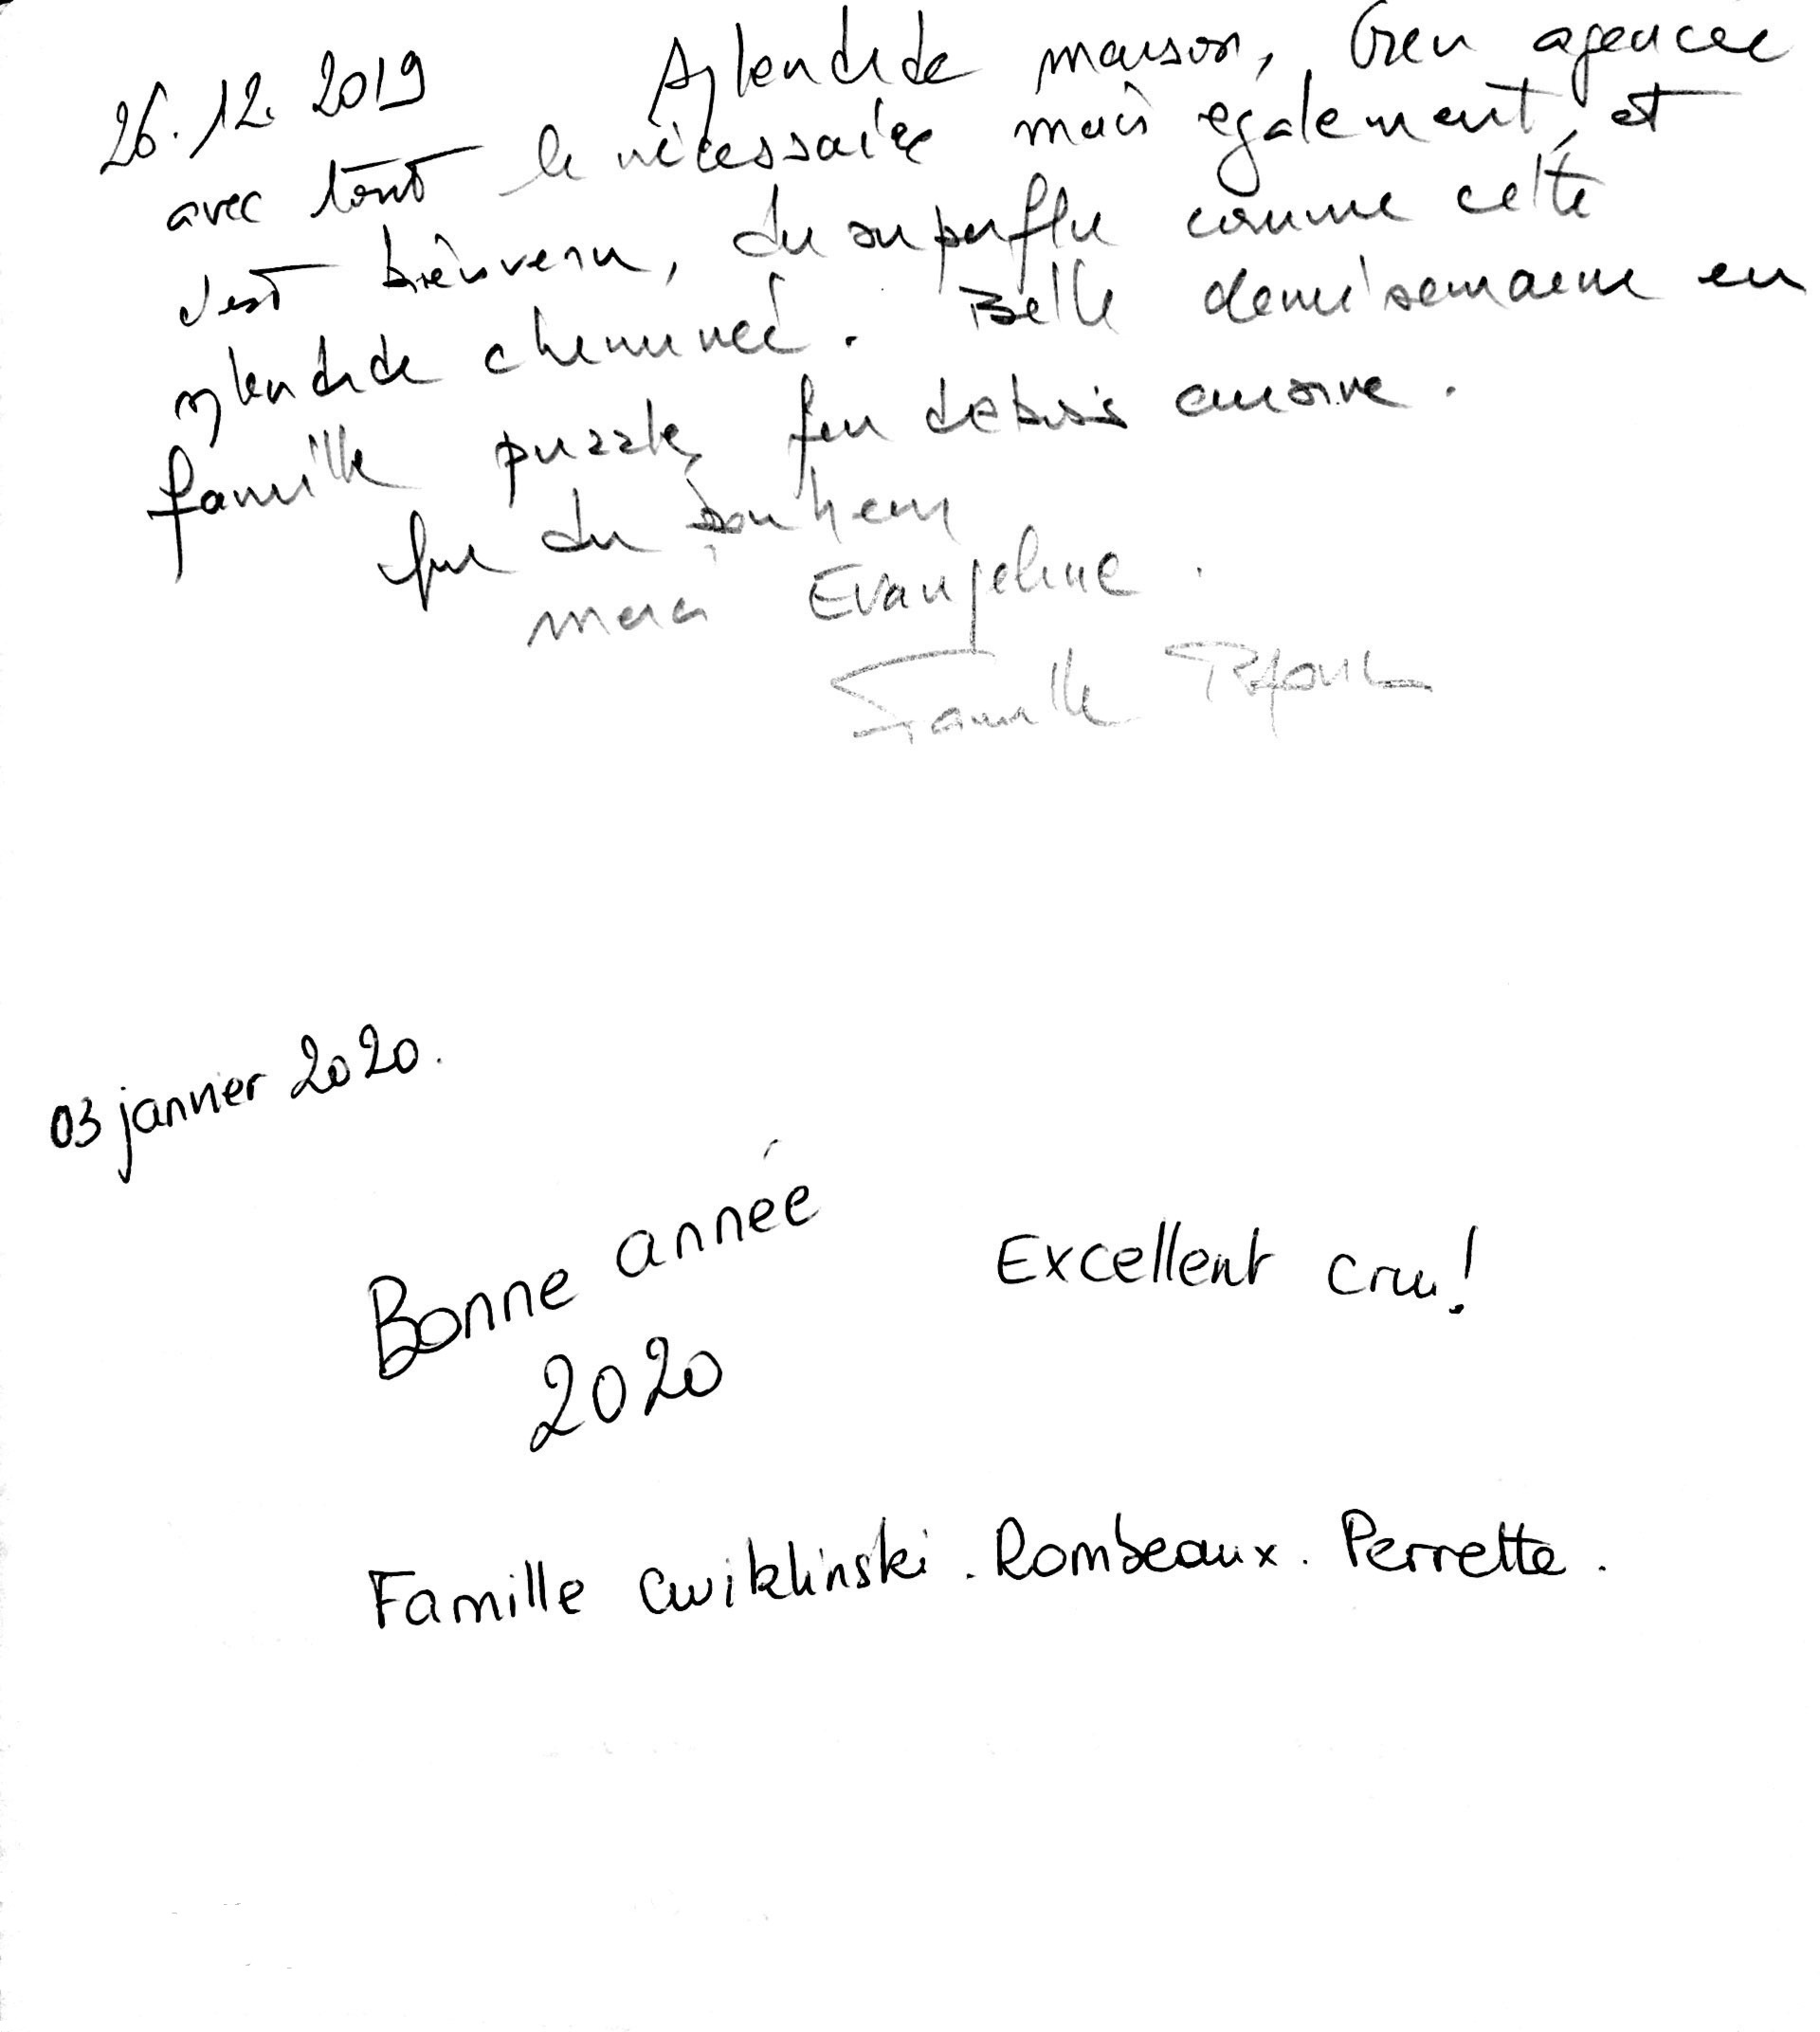 26.12.2019 Splendide maison, bien agencée
avec tout le nécessaire mais également, et
c'est bienvenu, du superflu comme cette
splendide cheminée. Belle demi semaine en
famille puzzle, feu de bois cuisine.
que du bonheur
merci Evangeline.
Famille
03 janvier 2020.
Bonne année
2020
Excellent cru!
Famille Cwiklinski. Rombeaux. Perrette.